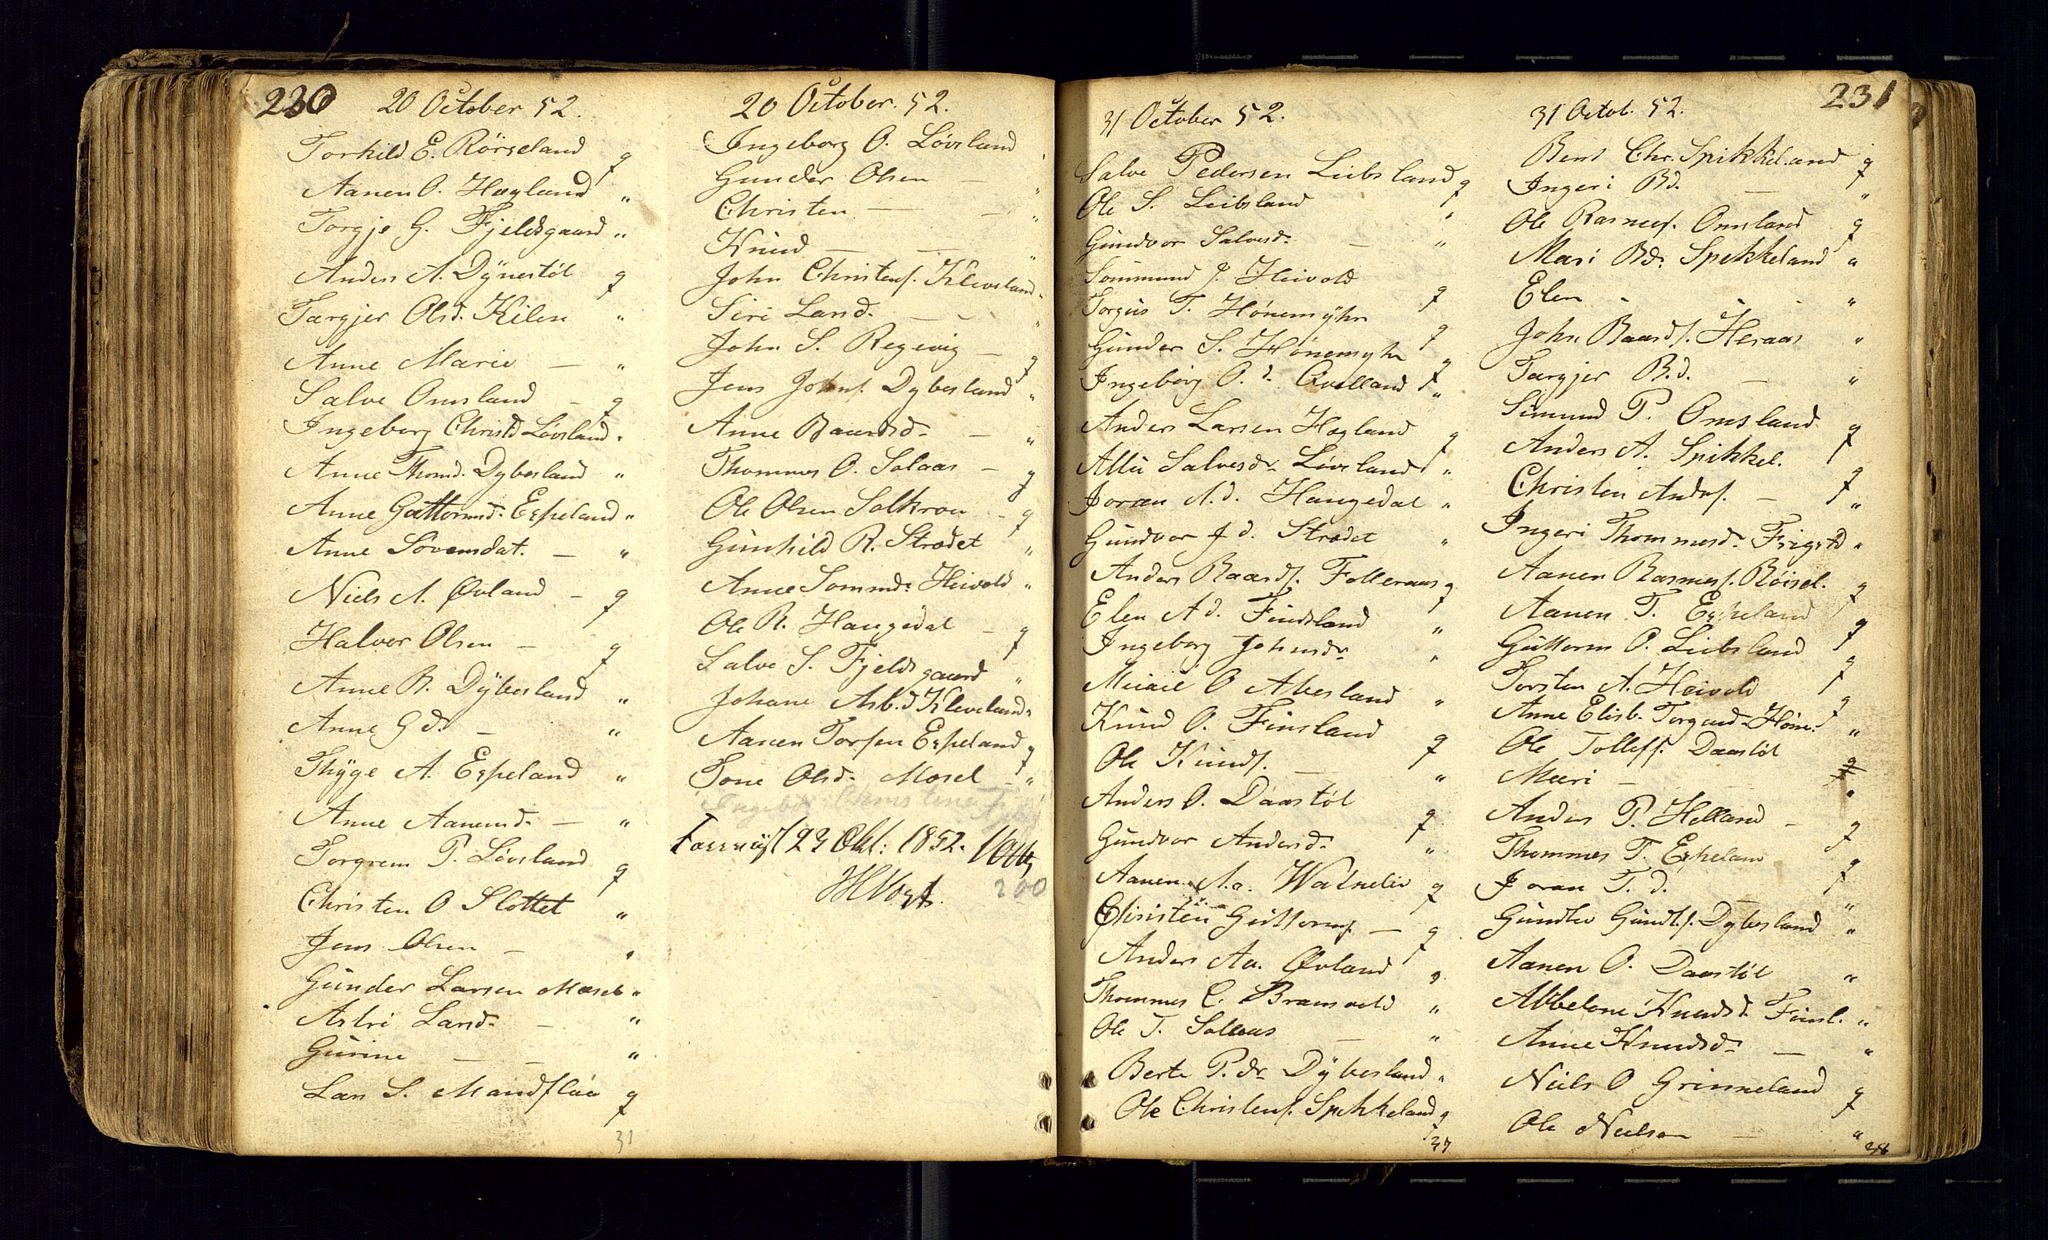 230
20 October 52.
Torkild E. Rörseland g
Aanen O. Hægland "
Torgje G. Fjeldsgaard "
Anders A. Dÿnestöl g
Tærgjer Olsd. Kilen "
Anne Marie — "
Salve Omsland — g
Ingeborg Christd Lövsland "
Anne Thomd. Dyblesland "
Anne Guttormsd. Espeland "
Anne Svensdat. — "
Niels A. Øvland — g
Halvor Olsen — g
Anne B. Dÿbesland "
Anne G d. — "
Thÿge A. Espeland "
Anne Aanensd. — "
Torgrem P. Lövsland g
Christen O Slottet "
Jens Olsen — "
Gunder Larsen Mosel "
Astri Larsd. — "
Gurine — — "
Lars S. Mandflaa g
31
20 October. 52.
Ingeborg O. Lövsland "
Gunder Olsen — "
Christen — — "
Knud — — "
John Christens. Klevland "
Siri Larsd. — "
John S. Regevig — g
Jens Johns. Dybesland "
Anne Baardsd. — "
Thommes O. Solaas — g
Ole Olsen Solkron — g
Gunhild R. Strædet "
Anne Sommd. Heivold "
Ole R. Haugedal — g
Salve S. Fjeldsgaard "
Johane Asb.d Kleveland "
Aanen Torsen Espeland g
Tone Olsd. Mosel — "
29 Okt: 1852.
JHVogt.
200
231
31 October 52.
Salve Pedersen Liebsland g
Ole S. Leibsland "
Gundvor Salvesd. — "
Sommund J. Heivold g
Torgius T. Hönemÿhr g
Gunder S. Hönemyhr g
Ingeborg O. d. Qvelland "
Anders Larsen Hægland g
Allie Salvesdr Lövsland "
Joran A. d. Haugedal "
Gundvor J d. Strædet "
Anders Baards. Folleraas g
Elen A d. Findsland "
Ingeborg Johnsdr "
Michael O Abesland "
Knud O. Finsland g
Ole Knuds. — "
Anders O. Daastöl g
Gundvor Andersd. "
Aanen Aa. Watnelie g
Christen Guttorms. — g
Anders Aa. Øvland "
Thommes C. Bramvold "
Ole T. Solaas — "
Berte P. dr Dÿbesland "
Ole Christens. Spikkeland g
37
31 Octob. 52.
Bent Chr. Spikkeland g
Ingeri Bd. — "
Ole Rasmus. Omsland g
Mari Bd. Spekkeland "
Elen - - "
John Baards. Heraas "
Tærgjer B. d. — "
Simund P. Omsland g
Anders A. Spikkel. g
Christen Anders. — "
Ingeri Thommesd. Frigstd "
Aanen Rasmus. Röisel. g
Aanen T. Espeland g
Guttorm P. Liebsland g
Torsten A. Heivold g
Anne Elisb. Torgiusd. Höne. "
Ole Tollefs. Daastöl g
Mari — "
Anders P. Helland — g
Thommes T. Espeland g
Joran T. d. — "
Gundlev Gundls. Dybesland "
Aanen O. Daastöl "
Abbelone Knudsd. Finsl. "
Anne Knudsd. — "
Niels O Grinneland g
Ole Nielsen — "
38